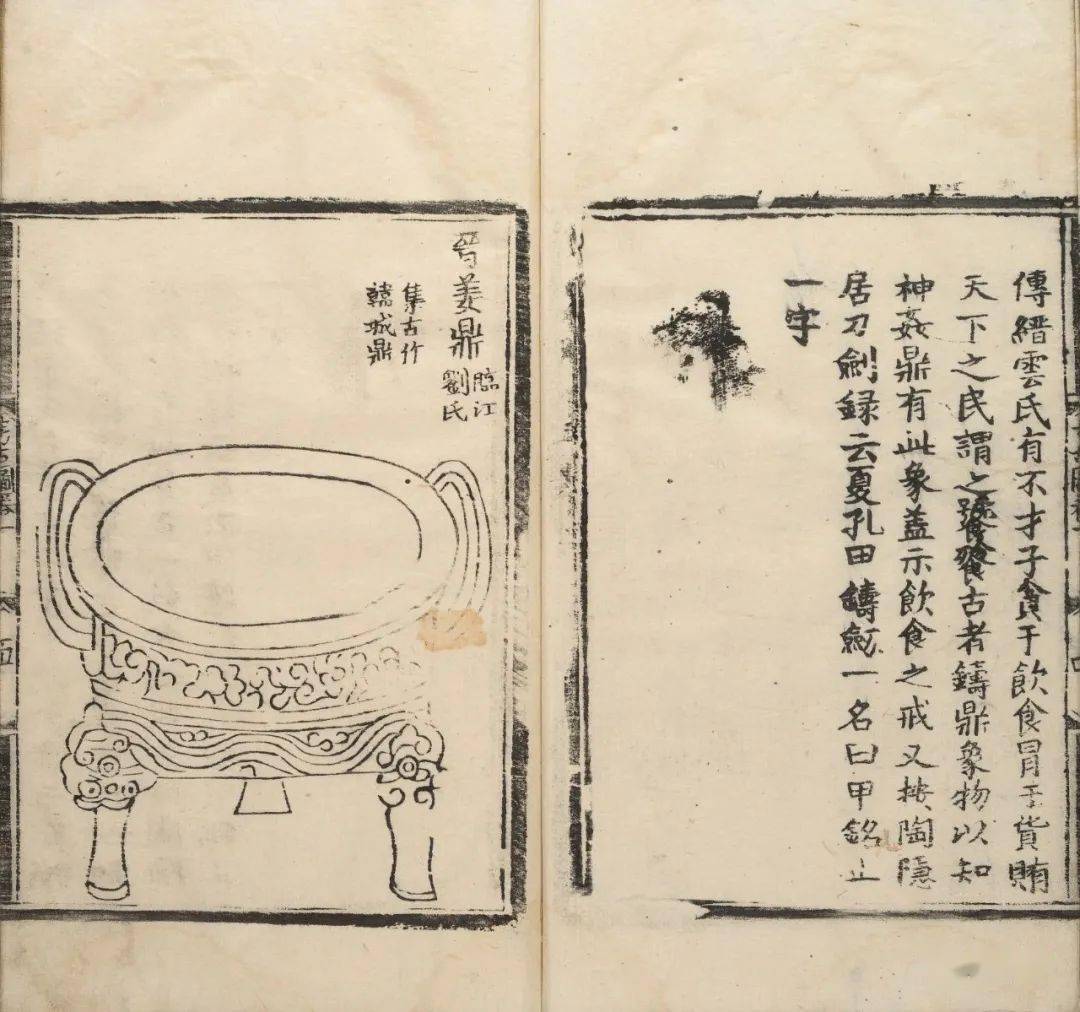 傳縉雲氏有不才子貪于飲食冒于貨賄
天下之民謂之饕餮古者鑄鼎象物以知
神姦鼎有此象蓋示飲食之戒又按陶隱
居刀劍録云夏孔甲鑄
一名曰甲銘止
一字
晉姜鼎
臨江
劉氏
集古作
韓城鼎